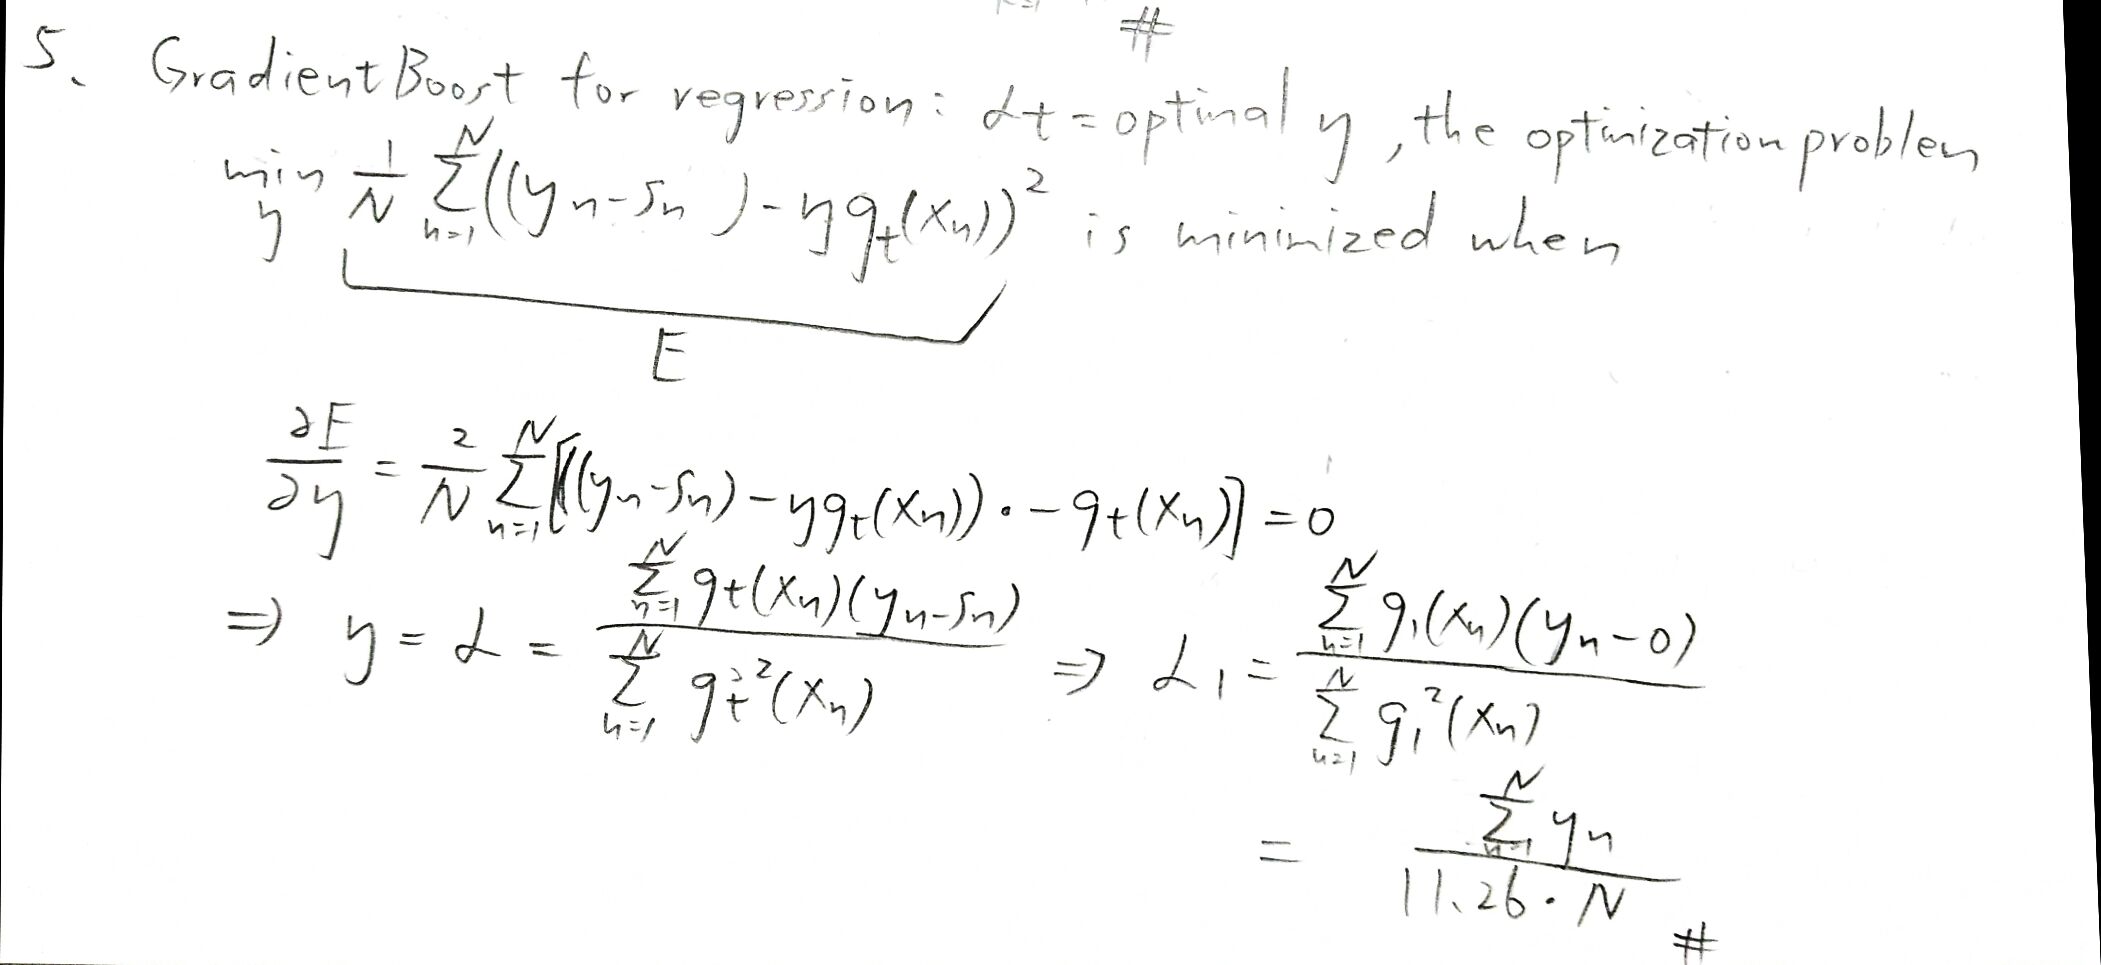 #
5. Gradient Boost for regression: αt = optimal η, the optimization problem
min_η 1/N Σ_{n=1}^{N} ((y_n - s_n) - η g_t(x_n))² is minimized when
E
∂E/∂η = 2/N Σ_{n=1}^{N} [((y_n - s_n) - η g_t(x_n)) · - g_t(x_n)] = 0
⇒ η = α = Σ_{n=1}^{N} g_t(x_n)(y_n - s_n) / Σ_{n=1}^{N} g_t²(x_n) ⇒ α_1 = Σ_{n=1}^{N} g_1(x_n)(y_n - 0) / Σ_{n=1}^{N} g_1²(x_n)
= Σ_{n=1}^{N} y_n / 11.26 · N #